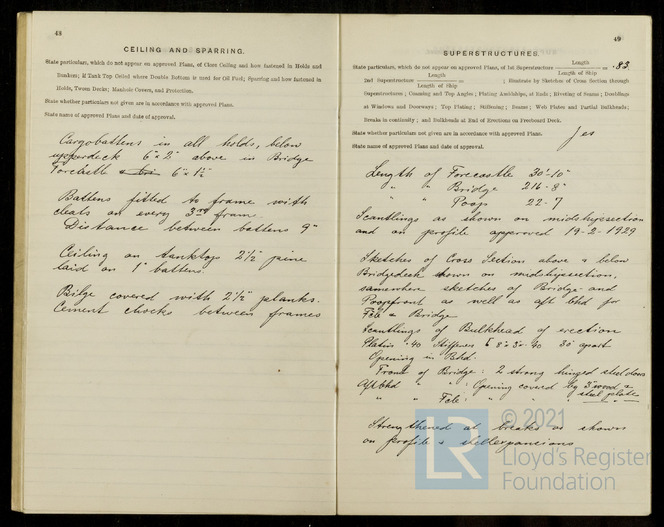 48
CEILING AND SPARRING.
State particulars, which do not appear on approved Plans, of Close Ceiling and how fastened in Holds and
Bunkers; if Tank Top Ceiled where Double Bottom is used for Oil Fuel; Sparring and how fastened in
Holds, Tween Decks; Manhole Covers, and Protection.
State whether particulars not given are in accordance with approved Plans.
State name of approved Plans and date of approval.
Cargobattens in all holds, below
upperdeck 6"x2" above in Bridge
6"x1½"
Battens fitted to frame with
cleats on every 3rd frame.
Distance between battens 9"
Ceiling on tanktops 2½" pine
laid on 1" battens.
Bilge covered with 2½" planks.
Cement chocks between frames
49
SUPERSTRUCTURES.
State particulars, which do not appear on approved Plans, of 1st Superstructure Length / Length of Ship = .83
2nd Superstructure Length / Length of Ship = ; Illustrate by Sketches of Cross Section through
Superstructures; Coaming and Top Angles; Plating Amidships, at Ends; Riveting of Seams; Doublings
at Windows and Doorways; Top Plating; Stiffening; Beams; Web Plates and Partial Bulkheads;
Breaks in continuity; and Bulkheads at End of Erections on Freeboard Deck.
State whether particulars not given are in accordance with approved Plans. Yes
State name of approved Plans and date of approval.
Length of Forecastle 30'-10"
" " Bridge 216-8"
" " Poop 22-7
Scantlings as shown on midshipsection
and on profile approved 19-2-1929
Sketches of Cross Section above & below
Bridgedeck shown on midshipsection,
sketches of Bridge and
Poopfront as well as aft bhd for
Fcle & Bridge
Scantlings of Bulkhead of erection
Plating .40 Stiffeners 30" apart
Opening in Bhd:
Front of Bridge: 2 strong hinged steeldoors
Aftbhd " : Opening covered by 3" wood &
steel plate
" " Fcle: " " "
Strengthened at breaks as shown
on profile &
© 2021
LR
Lloyd's Register
Foundation